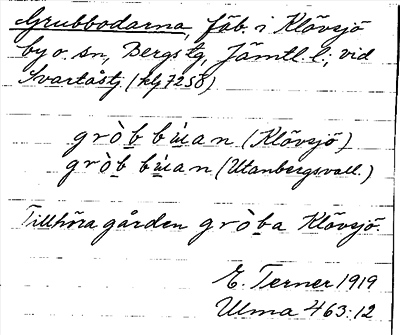 Grubbodarna, fäb. i Klövsjö
by o. sn, Bergs tg, Jämtl. l.; vid
Svartåstj (hfj 7250)
gròbbu̇an (Klövsjö)
gròbbu̇an (Utanbergsvall.)
Tillhöra gården gròba Klövsjö.
E. Terner 1919
Ulma 463:12